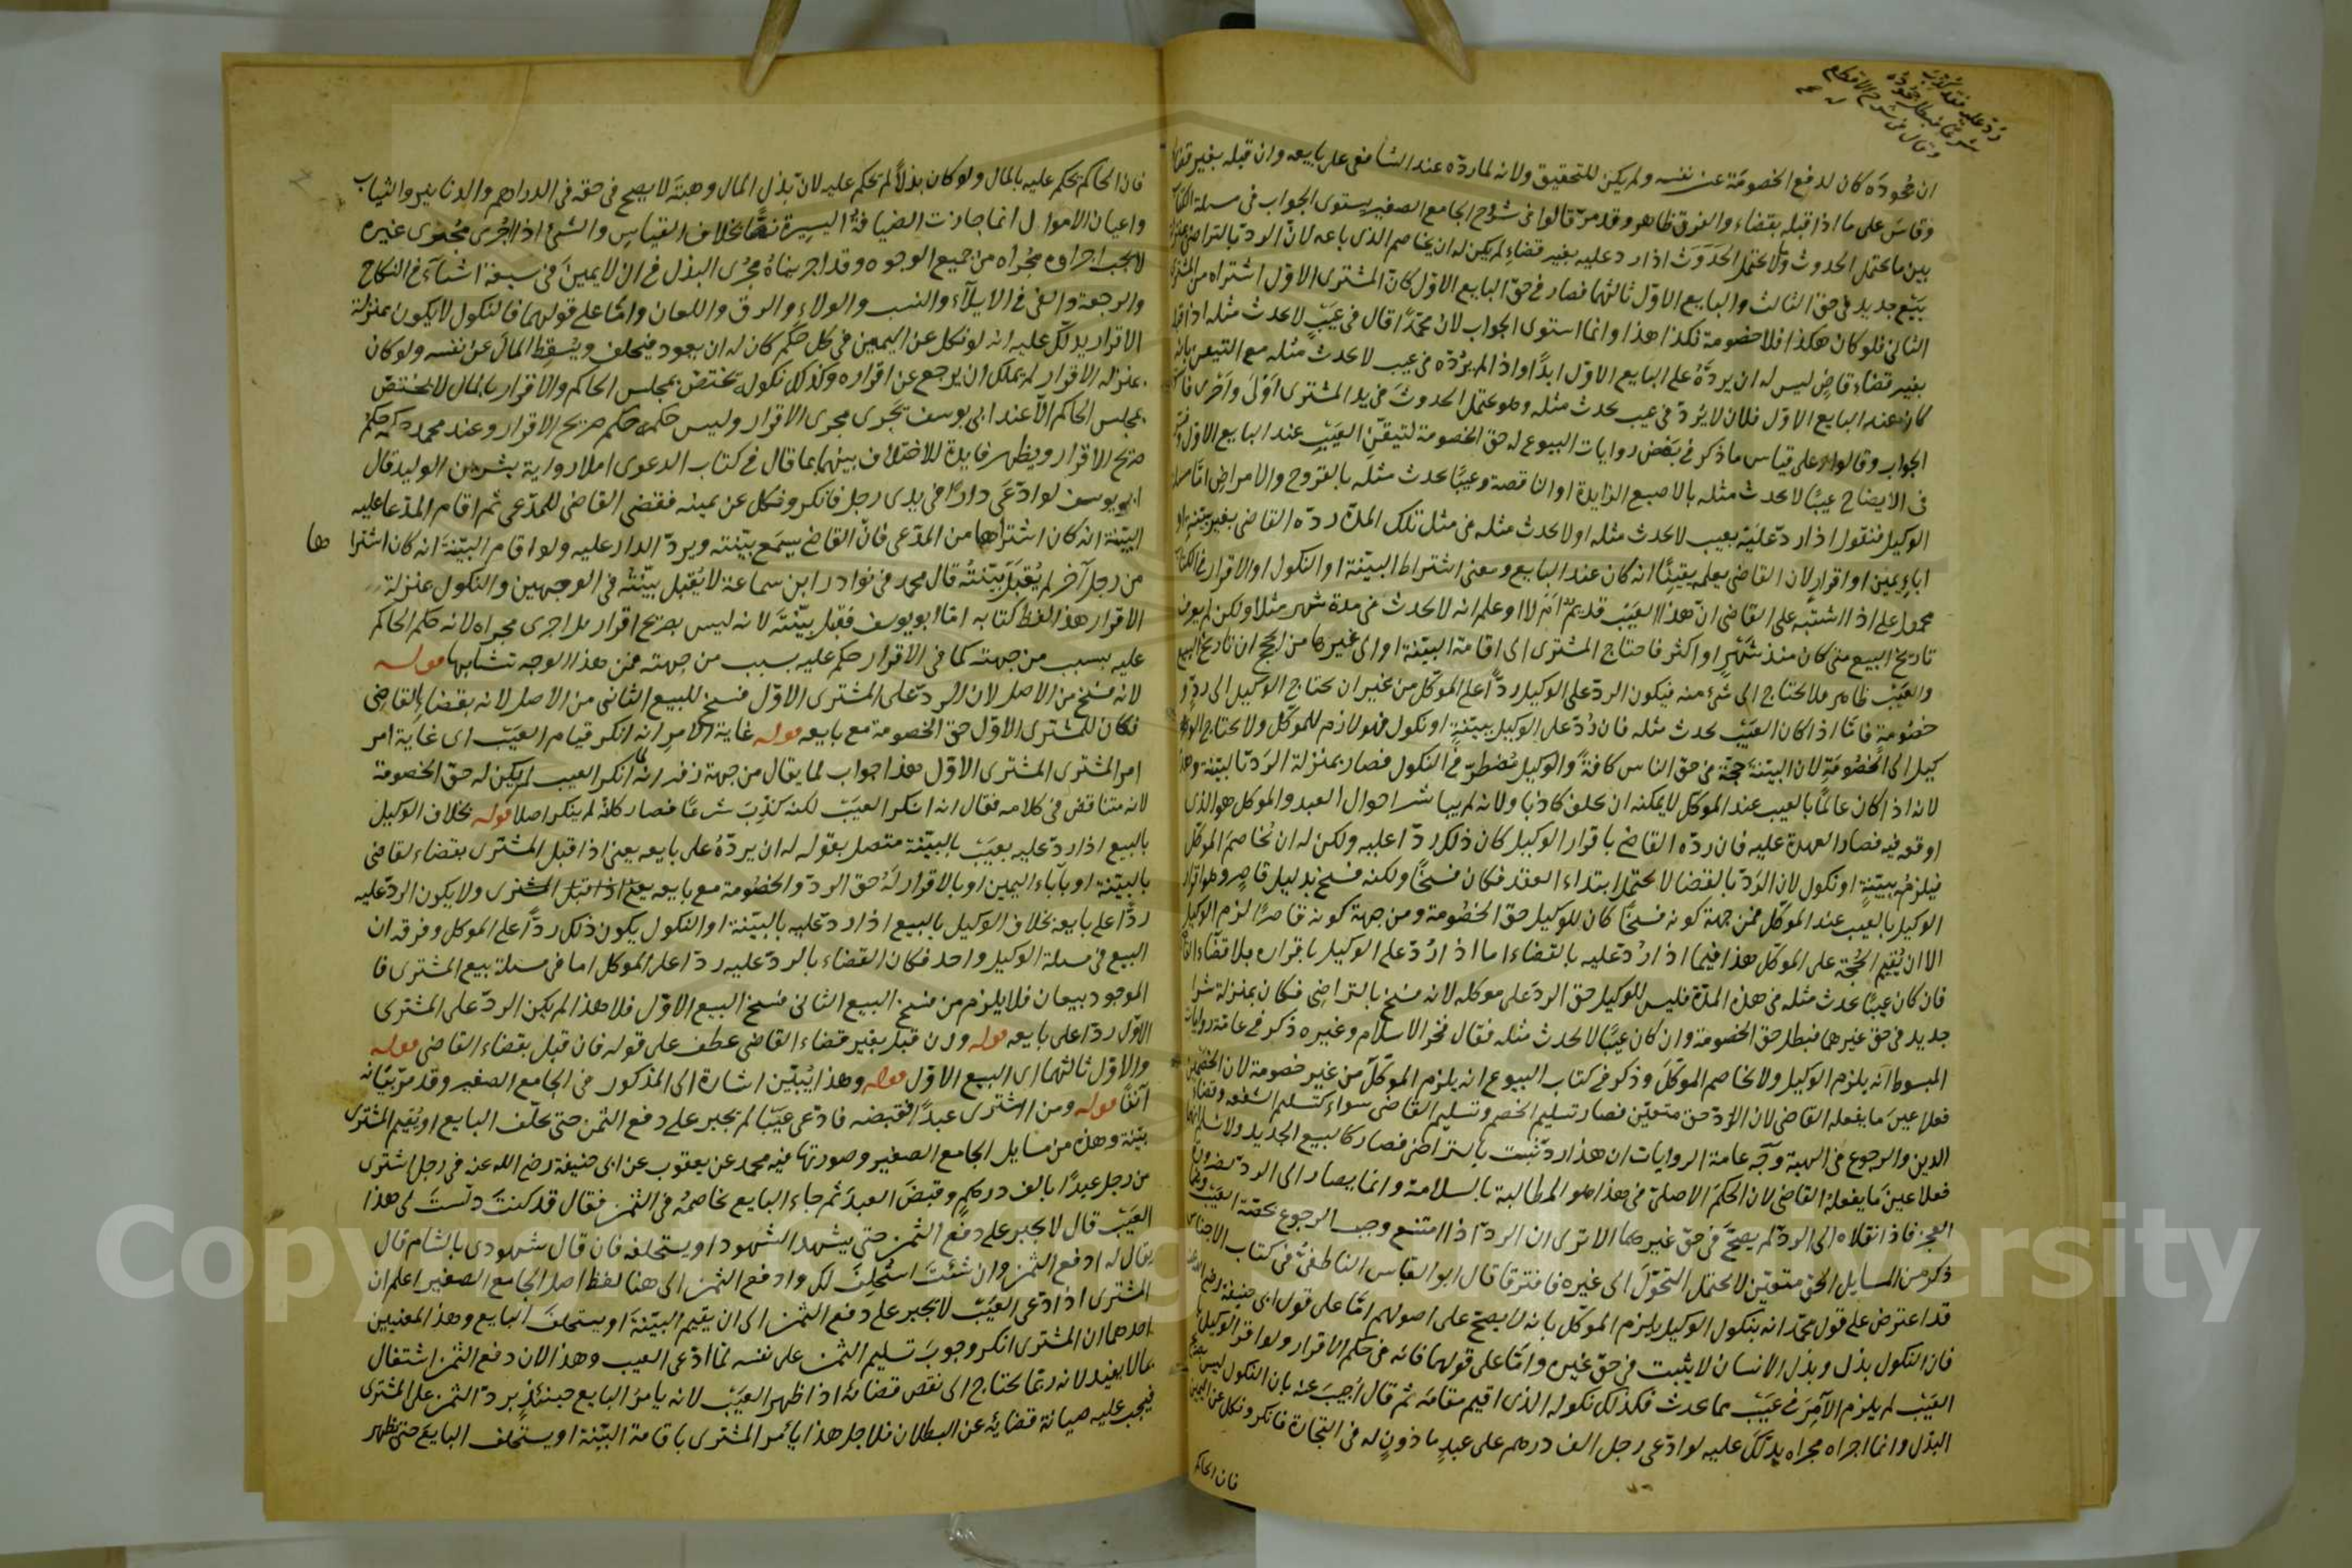 رد عليه فقد كذب
شرعا فبطل جحوده
وقال في شرح الاقطع
ان جحوده كان لدفع الخصومة عن نفسه ولم يكن للتحقيق ولانه لما رده عند الشافعى على بايعه وان قبله بغير قضا
وقاس على ما اذا قبله بقضاء والفرق ظاهر وقد مرّ قالوا فى شروح الجامع الصغير يستوى الجواب فى مسلة الكتاب
بين ما يحتمل الحدوث ولا يحتمل الحدوث اذا رد عليه بغير قضاء لم يكن له ان يخاصم الذى باعه لان الرد بالتراضى
بيع جديد فى حق الثالث والبايع الاوّل ثالثهما فصار فى حق البايع الاوّل كان المشترى الاوّل اشتراه من المشترى
الثانى فلو كان هكذا فلا خصومة فكذا هذا وانما استوى الجواب لان محمدا قال فى عيب لا يحدث مثله اذا قبله
بغير قضاء قاض ليس له ان يرده على البايع الاوّل ابدا واذا لم يرده فى عيب لا يحدث مثله مع التيقن بانه
كان عند البايع الاوّل فلان لا يردّ فى عيب يحدث مثله وهو يحتمل الحدوث فى يد المشترى اولى واحرى
الجواب وقالوا على قياس ما ذكر فى بعض روايات البيوع له حق الخصومة لتيقن العيب عند البايع الاوّل
فى الايضاح عيبا لا يحدث مثله بالاصبع الزايدة او الناقصة وعيبا يحدث مثله بالقروح والامراض امّا مسلة
الوكيل فنقول اذا ردّ عليه بعيب لا يحدث مثله او لا يحدث مثله فى مثل تلك المدة ردّه القاضى بغير بينة او
اباء يمين او اقرار لان القاضى يعلم يقينا انه كان عند البايع ومعنى اشتراط البيّنة او النكول او الاقرار فى الكتاب
محمول على اذا اشتبه على القاضى ان هذا العيب قديم ام لا او علم انه لا يحدث فى مدة شهر مثلا ولكن لم يعرف
تاريخ البيع متى كان منذ شهر او اكثر فاحتاج المشترى الى اقامة البيّنة او الى غيرها من الحجج ان تاريخ البيع
والعيب ظاهر فلا يحتاج الى شئ منه فيكون الردّ على الوكيل ردّا على الموكّل من غير ان يحتاج الوكيل الى ردّ و
خصومة فامّا اذا كان العيب يحدث مثله فان رُدّ على الوكيل ببيّنة او نكول فهو لازم للموكّل ولا يحتاج الو
كيل الى الخصومة لان البيّنة حجّة فى حق الناس كافّة والوكيل مضطرّ فى النكول فصار بمنزلة الرد بالبيّنة وهذا
لانه اذا كان عالما بالعيب عند الموكل لا يمكنه ان يحلف كاذبا ولانه لم يباشر احوال العبد والموكل هو الذى
اوقعه فيه فصار العهدة عليه فان ردّه القاضى باقرار الوكيل كان ذلك ردّا عليه ولكن له ان يخاصم الموكّل
فيلزمه ببيّنة او نكول لان الردّ بالقضا لا يحتمل ابتداء العقد فكان فسخا ولكنه فسخ بدليل قاصر وهو اقرار
الوكيل بالعيب عند الموكّل فمن جهة كونه فسخا كان للوكيل حق الخصومة ومن جهة كونه قاصرا لزم الوكيل
الا ان يُقيم الحجّة على الموكّل هذا فيما اذا رُدّ عليه بالقضاء اما اذا رُدّ على الوكيل باقراره بلا قضاء
فان كان عيبا يحدث مثله فى هذه المدّة فليس للوكيل حق الرد على موكله لانه فسخ بالتراضى فكان بمنزلة شرا
جديد فى حق غيرهما فبطل حق الخصومة وان كان عيبا لا يحدث مثله فقال فخر الاسلام وغيره ذكر فى عامة روايات
المبسوط انه يلزم الوكيل ولا يخاصم الموكل وذكر فى كتاب البيوع انه يلزم الموكّل من غير خصومة لان الخصمين
فعلا عين ما يفعله القاضى لان الردّ حق متعيّن فصار تسليم الخصم وتسليم القاضى سواء كتسليم الشفعة وقضاء
الدين والرجوع فى الهبة وجه عامة الروايات ان هذا ردّ ثبت بالتراضى فصار كالبيع الجديد ولا نسلم انهما
فعلا عين ما يفعله القاضى لان الحكم الاصلىّ فى هذا هو المطالبة بالسلامة وانما يصار الى الرد ضرورة
العجز فاذا نقلاه الى الردّ لم يصحّ فى حقّ غيرهما الا ترى ان الردّ اذا امتنع وجب الرجوع بحصّة العيب
ذكر من المسايل الحق متعيّن لا يحتمل التحوّل الى غيره فافترقا قال ابو العباس الناطفى فى كتاب الاجناس
قد اعترض على قول محمد انه بنكول الوكيل يلزم الموكّل بانه لا يصحّ على اصولهم امّا على قول ابى حنيفة رضى الله عنه
فان النكول بذل وبذل الانسان لا يثبت فى حق غيره وامّا على قولهما فانه فى حكم الاقرار ولو اقرّ الوكيل
العيب لم يلزم الآمر فى عيب مما يحدث فكذلك نكوله الذى اقيم مقامه ثم قال اُجيب عنه بان النكول ليس
البذل وانما اجراه مجراه يدلك عليه لو ادّعى رجل الف درهم على عبد ماذون له فى التجارة فانكر ونكل عن اليمين
فان الحاكم
فان الحاكم يحكم عليه بالمال ولو كان بذلا لم يحكم عليه لان بذل المال وهبته لا يصح فى حقه فى الدراهم والدنانير والثياب
واعيان الاموال انما جازت الضيافة اليسيرة نصّا بخلاف القياس والشئ اذا اجرى مجرى غيره
لا يجب اجراوه مجراه من جميع الوجوه وقد اجريناه مجرى البذل فى ان لا يمين فى سبعة اشياء فى النكاح
والرجعة والفئ فى الايلاء والنسب والولاء والرق واللعان وامّا على قولهما فالنكول لا يكون بمنزلة
الاقرار يدلّك عليه انه لو نكل عن اليمين فى كل حكم كان له ان يعود فيحلف ويُسقط المال عن نفسه ولو كان
بمنزلة الاقرار لم يملك ان يرجع عن اقراره وكذلك نكوله يختصّ بمجلس الحاكم والاقرار بالمال لا يختصّ
بمجلس الحاكم الّا عند ابى يوسف يجرى مجرى الاقرار وليس حكمه حكم صريح الاقرار وعند محمد حكمه حكم
صريح الاقرار ويظهر فايدة الاختلاف بينهما بما قال فى كتاب الدعوى املا رواية بشر بن الوليد قال
ابو يوسف لو ادّعى دارا فى يدى رجل فانكر ونكل عن يمينه فقضى القاضى للمدّعى ثم اقام المدّعا عليه
البيّنة انه كان اشتراها من المدّعى فانّ القاضى يسمع بيّنته ويردّ الدار عليه ولو اقام البيّنة انه كان اشترا ها
من رجل آخر لم يُقبل بيّنته قال محمد فى نوادر ابن سماعة لا يُقبل بيّنته فى الوجهين والنكول بمنزلة
الاقرار هذا لفظ كتابه امّا ابو يوسف فقبل بيّنته لانه ليس بصريح اقرار بل اجرى مجراه لانه حكم الحاكم
عليه بسبب من جهته كما فى الاقرار حكم عليه بسبب من جهته فمن هذا الوجه تشابها قوله
لانه فسخ من الاصل لان الردّ على المشترى الاوّل فسخ للبيع الثانى من الاصل لانه بقضاء القاضى
فكان للمشترى الاوّل حق الخصومة مع بايعه قوله غاية الامر انه انكر قيام العيب اى غاية امر
امر المشترى المشترى الاوّل هذا جواب لما يقال من جهة زفر انه لما انكر العيب لم يكن له حق الخصومة
لانه متناقض فى كلامه فقال انه انكر العيب لكنه كذب شرعا فصار كانه لم ينكر اصلا قوله بخلاف الوكيل
بالبيع اذا ردّ عليه بعيب بالبيّنة متصل بقوله له ان يردّه على بايعه يعنى اذا قبل المشترى بقضاء القاضى
بالبيّنة او باباء اليمين او بالاقرار له حق الردّ والخصومة مع بايعه يعنى اذا قبل المشترى ولا يكون الردّ عليه
ردّا على بايعه بخلاف الوكيل بالبيع اذا ردّ عليه بالبيّنة او النكول يكون ذلك ردّا على الموكل وفرقه ان
البيع فى مسلة الوكيل واحد فكان القضاء بالردّ عليه ردّا على الموكل اما فى مسلة بيع المشترى فا
الموجود بيعان فلا يلزم من فسخ البيع الثانى فسخ البيع الاوّل فلاهذا لم يكن الردّ على المشترى
الاوّل ردّا على بايعه قوله وان قبل بغير قضاء القاضى عطف على قوله فان قبل بقضاء القاضى قوله
والاوّل ثالثهما اى البيع الاوّل قوله وهذا يُبيّن اشارة الى المذكور فى الجامع الصغير وقد مرّ بيانه
آنفا قوله ومن اشترى عبدا فقبضه فادّعى عيبا لم يجبر على دفع الثمن حتى يحلف البايع او يُقيم المشترى
بيّنة وهذه من مسايل الجامع الصغير وصورتها فيه محمد عن يعقوب عن ابى حنيفة رضى الله عنه فى رجل اشترى
من رجل عبدا بالف درهم وقبض العبد ثم جاء البايع يخاصمه فى الثمن فقال قد كنت دلّست لى هذا
العيب قال لا يجبر على دفع الثمن حتى يشهد الشهود او يستحلفه فان قال شهودى بالشام قال
يقال له ادفع الثمن وان شئت استُحلف لك وادفع الثمن الى هنا لفظ اصل الجامع الصغير اعلم ان
المشترى اذا ادّعى العيب لا يجبر على دفع الثمن الى ان يقيم البيّنة او يستحلف البايع وهذا لمعنيين
احدهما ان المشترى انكر وجوب تسليم الثمن على نفسه لمّا ادّعى العيب وهذا لان دفع الثمن اشتغال
بما لا يفيد لانه ربما يحتاج الى نقض قضائه اذا ظهر العيب لانه يامر البايع حينئذ بردّ الثمن على المشترى
فيجب عليه صيانة قضايه عن البطلان فلاجل هذا يأمر المشترى باقامة البيّنة او يستحلف البايع حتى يظهر
Copyright © King Saud University